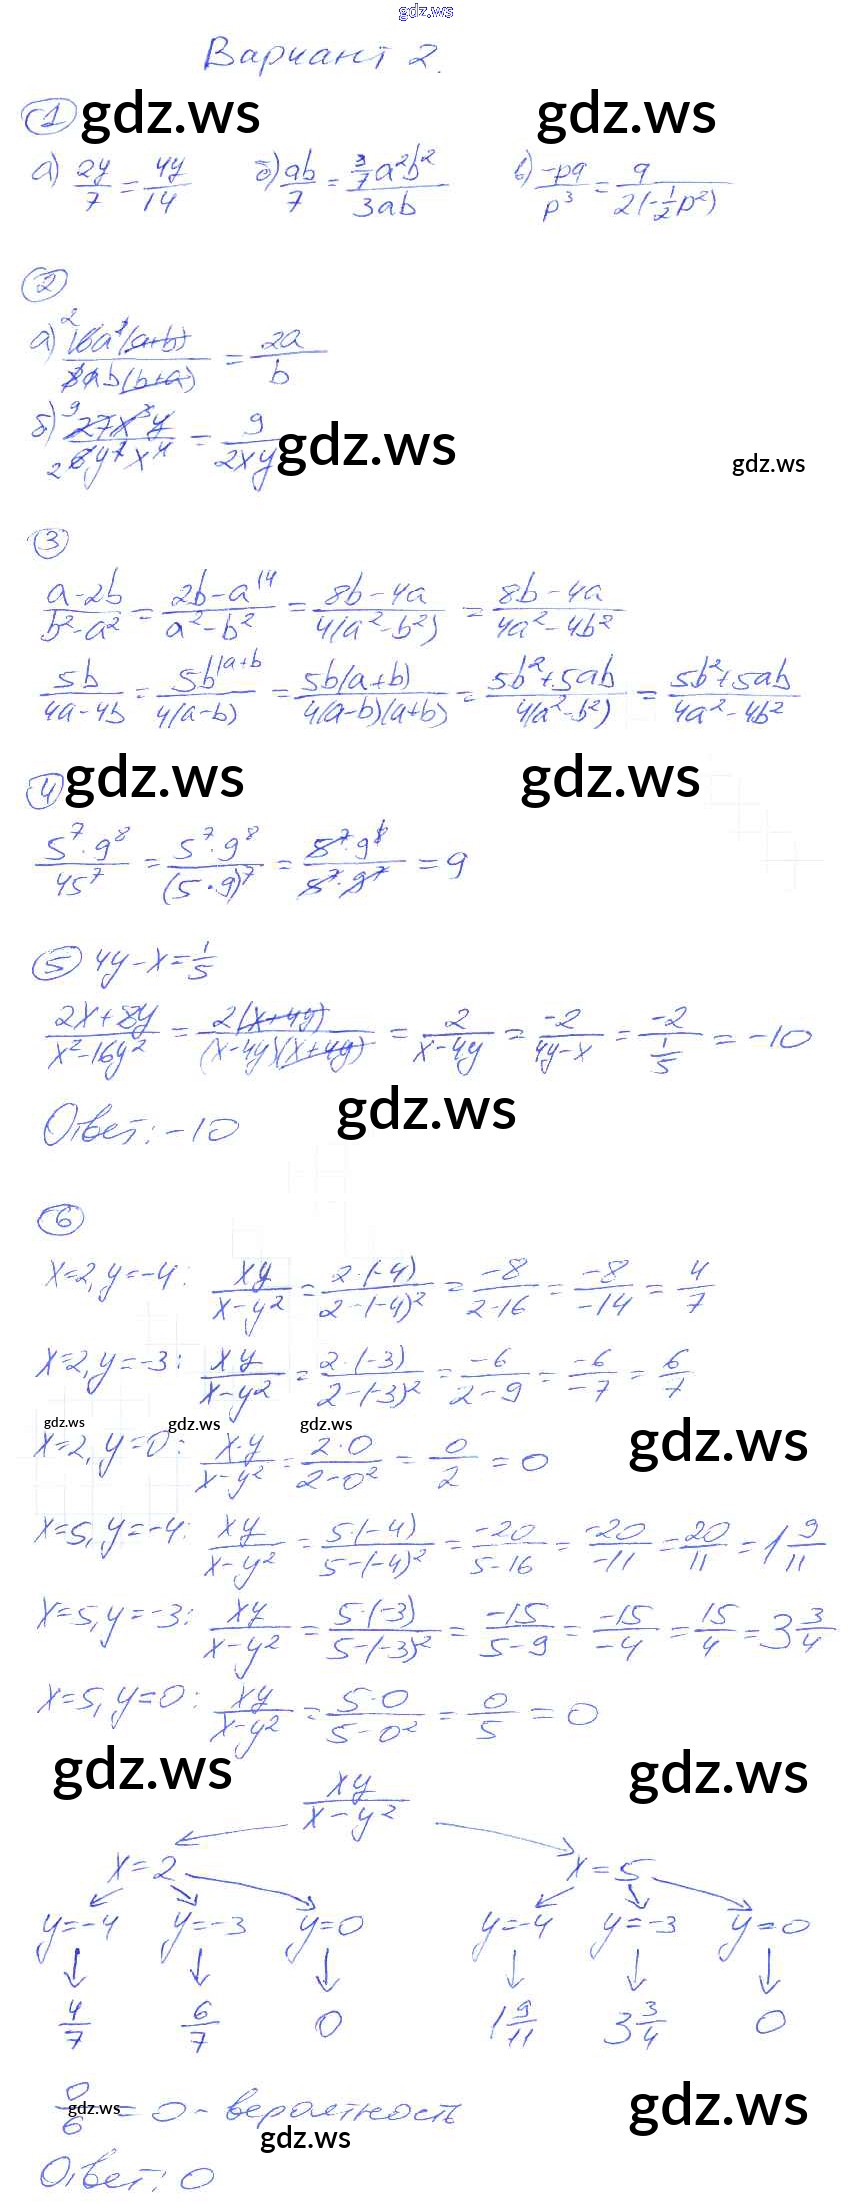 gdz.ws
Вариант 2.
1 gdz.ws gdz.ws
а) 2y/7 = 4y/14 б) ab/7 = (3/7 a²b²)/(3ab) в) -pq/p³ = q/(2(-1/2 p²))
2
а) 16a²(a+b)/(8ab(b+a)) = 2a/b
б) 27x³y/(6y²x⁴) = 9/(2xy) gdz.ws gdz.ws
3
(a-2b)/(b²-a²) = (2b-a)/(a²-b²) = (8b-4a)/(4(a²-b²)) = (8b-4a)/(4a²-4b²)
5b/(4a-4b) = 5b/(4(a-b)) = 5b(a+b)/(4(a-b)(a+b)) = (5b²+5ab)/(4(a²-b²)) = (5b²+5ab)/(4a²-4b²)
4 gdz.ws gdz.ws
5⁷·9⁸/45⁷ = 5⁷·9⁸/(5·9)⁷ = 5⁷·9⁸/(5⁷·9⁷) = 9
5 4y-x=1/5
(2x+8y)/(x²-16y²) = 2(x+4y)/((x-4y)(x+4y)) = 2/(x-4y) = -2/(4y-x) = -2/(1/5) = -10
Ответ: -10 gdz.ws
6
x=2, y=-4: xy/(x-y²) = 2·(-4)/(2-(-4)²) = -8/(2-16) = -8/-14 = 4/7
x=2, y=-3: xy/(x-y²) = 2·(-3)/(2-(-3)²) = -6/(2-9) = -6/-7 = 6/7
gdz.ws gdz.ws gdz.ws gdz.ws
x=2, y=0: x·y/(x-y²) = 2·0/(2-0²) = 0/2 = 0
x=5, y=-4: xy/(x-y²) = 5·(-4)/(5-(-4)²) = -20/(5-16) = -20/-11 = 20/11 = 1 9/11
x=5, y=-3: xy/(x-y²) = 5·(-3)/(5-(-3)²) = -15/(5-9) = -15/-4 = 15/4 = 3 3/4
x=5, y=0: xy/(x-y²) = 5·0/(5-0²) = 0/5 = 0
gdz.ws gdz.ws
xy/(x-y²)
x=2 x=5
y=-4 y=-3 y=0 y=-4 y=-3 y=0
4/7 6/7 0 1 9/11 3 3/4 0
0/6 = 0 - вероятность
gdz.ws gdz.ws gdz.ws
Ответ: 0